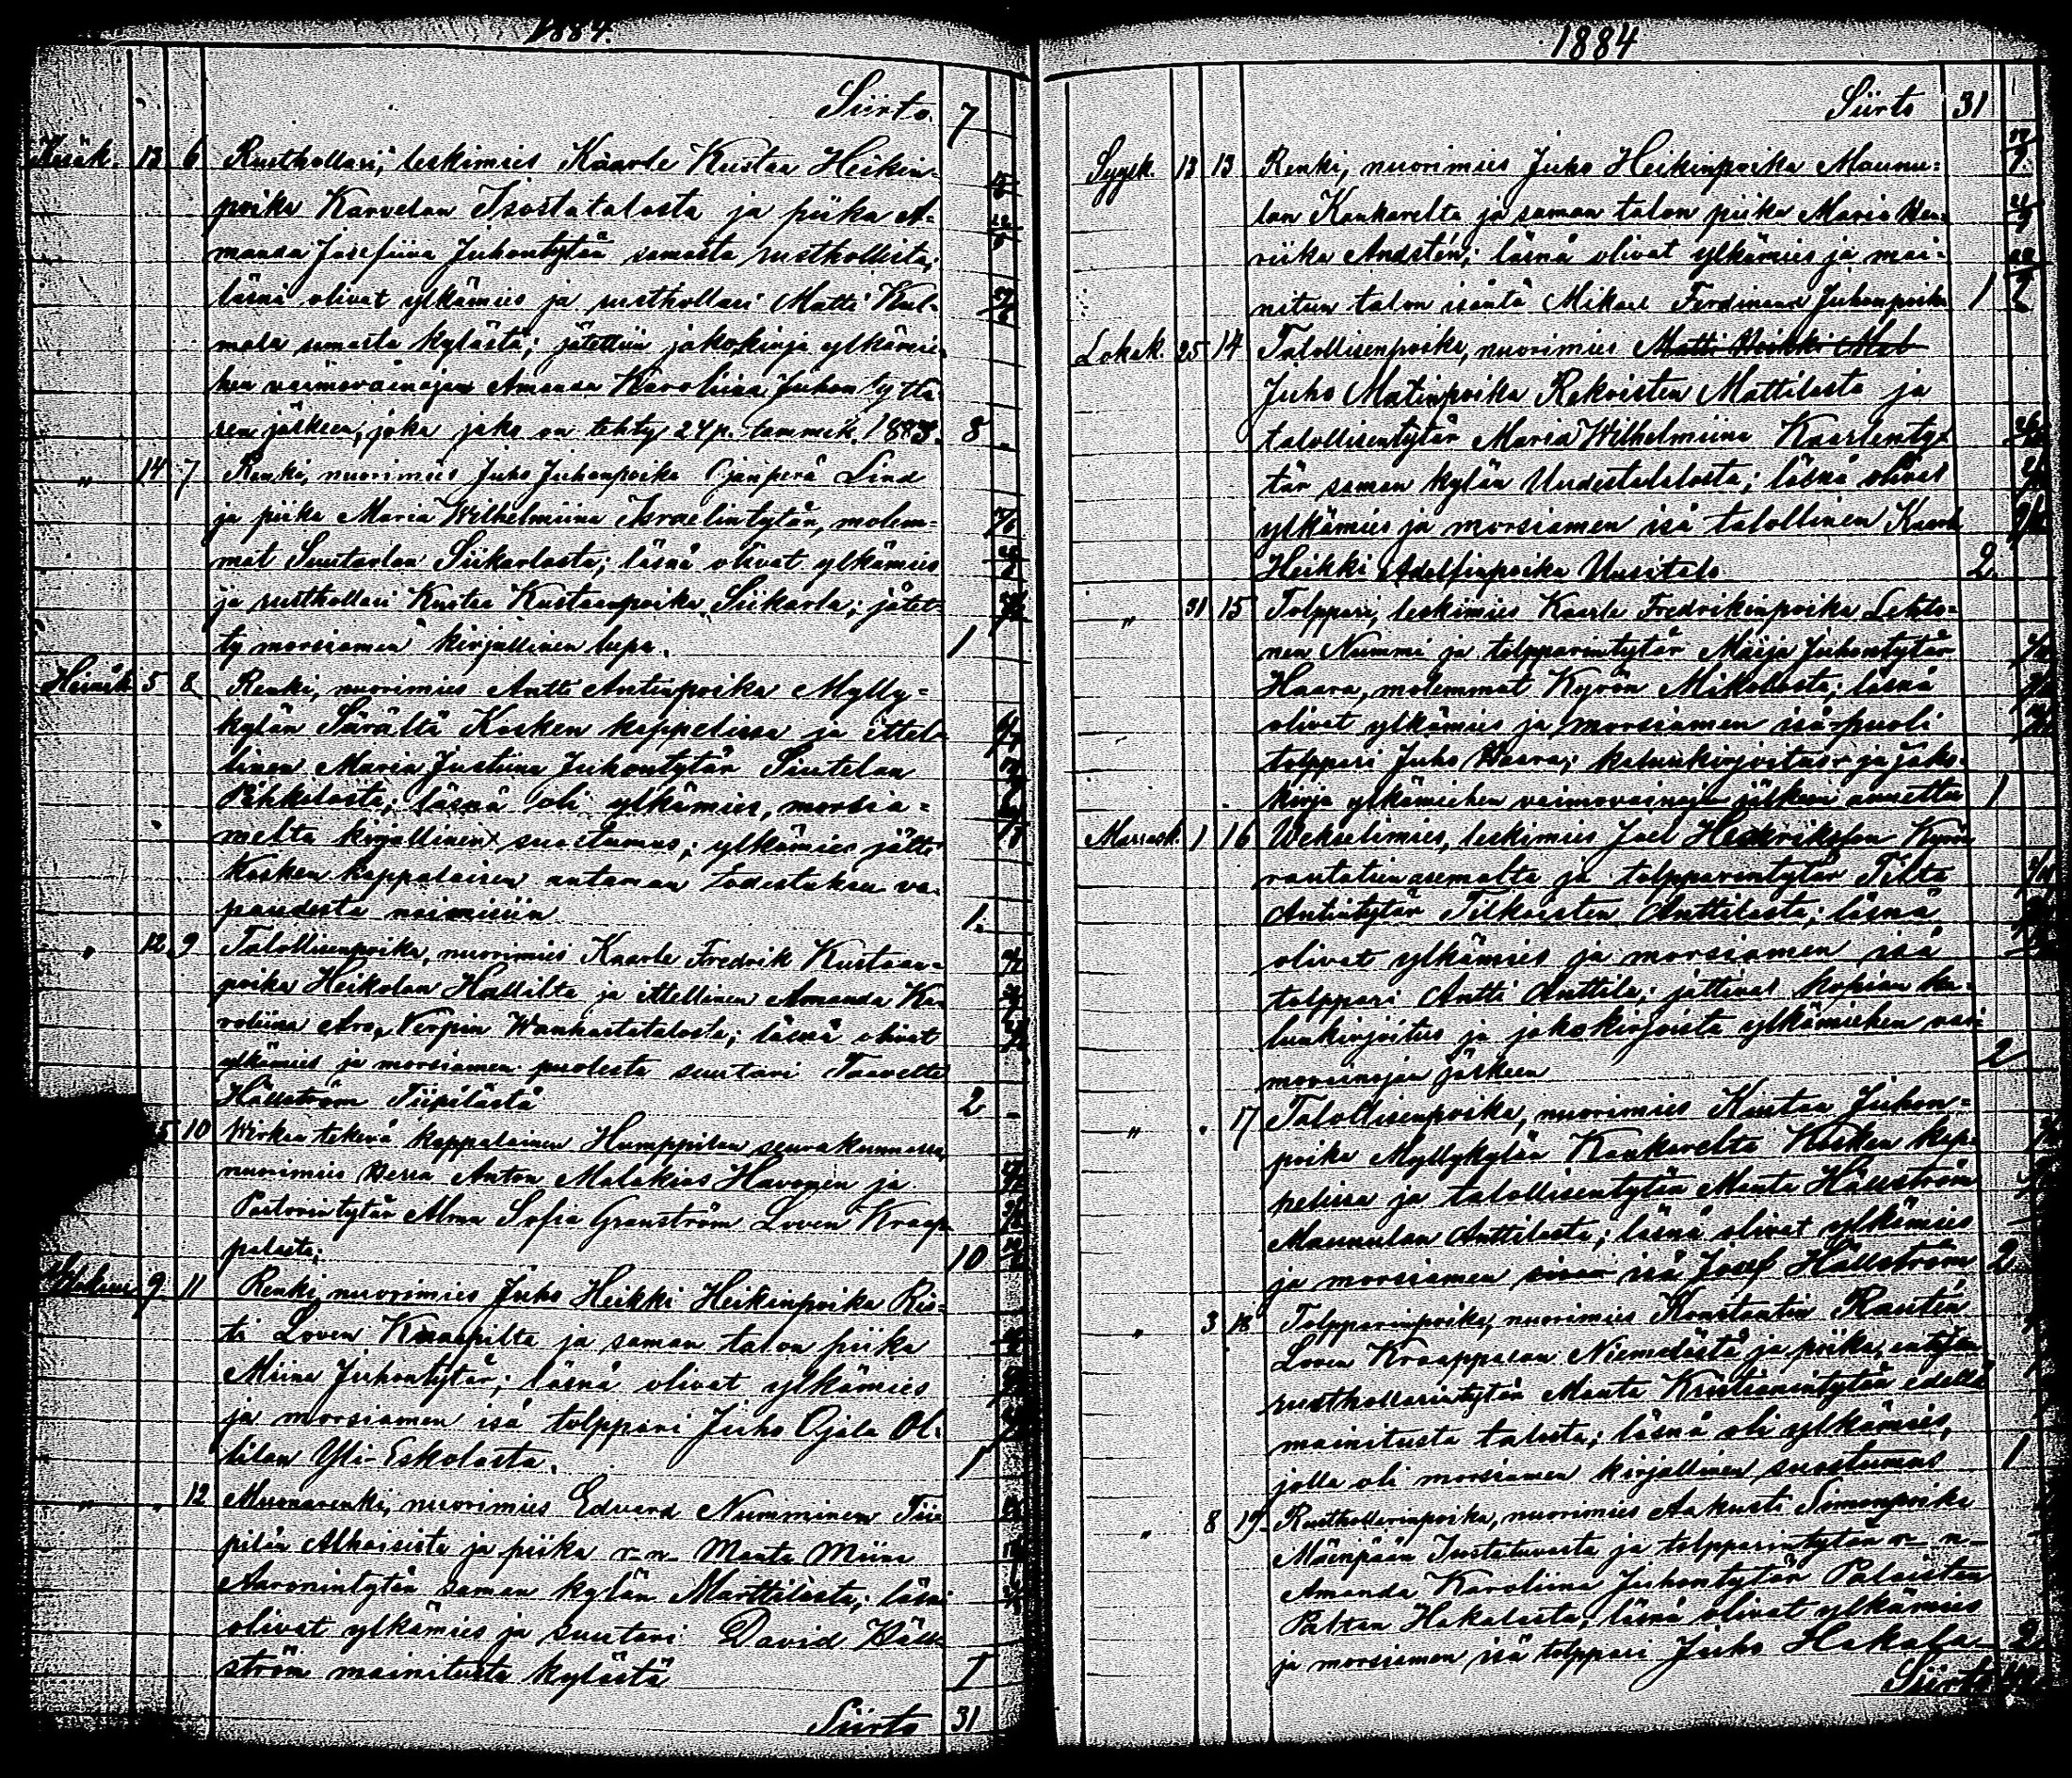 1884.
Siirto. 7
Kesäk. 13 6 Rusthollari, leskimies Kaarle Kustaa Heikin-
poika Karvelan Isostatalosta ja piika A-
manda Josefiina Juhontytär samasta rusthollista;
läsnä olivat ylkämies ja rusthollari Matti Kul-
mala samasta kylästä; jätettiin jakokirja ylkämie-
hen vaimovainajan Amanda Karoliina Juhontyttä-
ren jälkeen, joka jako on tehty 24 p. tammik. 1883. 8
„ 14 7 Renki, nuorimies Juho Juhonpoika Ojanperä Lind
ja piika Maria Wilhelmiina Israelintytär, molem-
mat Suutarlan Siikarlasta; läsnä olivat ylkämies
ja rusthollari Kustaa Kustaanpoika Siikarla; jätet-
ty morsiamen kirjallinen lupa. 1
Heinäk. 5 8 Renki, nuorimies Antti Antinpoika Mylly-
kylän Särältä Kosken kappelissa ja ittel-
linen Maria Justiina Juhontytär Siutelan
Pihkalasta; läsnä oli ylkämies, morsia-
melta kirjallinen suostumus; ylkämies jätti
Kosken kappalaisen antaman todistuksen va-
paudesta naimisiin 1.
„ 12 9 Talollisenpoika, nuorimies Kaarle Fredrik Kustaan-
poika Heikolan Hallilta ja ittellinen Amanda Ka-
roliina Aro, Verpin Wanhastatalosta; läsnä olivat
ylkämies ja morsiamen puolesta suutari Taavetti
Hällström Tiipilästä 2
5 10 Wirkaa tekevä kappalainen Humppilan seurakunnassa,
nuorimies Herra Anton Malakias Havonen ja
Pastorintytär Alma Sofia Granström Loven Kraap-
palasta; 10
Elokuu 9 11 Renki, nuorimies Juho Heikki Heikinpoika Ris-
ti Loven Knaapilta ja saman talon piika
Miina Juhontytär; läsnä olivat ylkämies
ja morsiamen isä tolppari Juho Ojala Ol-
lilan Yli-Eskolasta. 1
„ „ 12 Muonarenki, nuorimies Edvard Numminen Tii-
pilän Alhaisista ja piika r-n- Manta Miina
Aaronintytär saman kylän Marttilasta; läsnä
olivat ylkämies ja suutari David Häll-
ström mainitusta kylästä 1
Siirto 31
1884
Siirto 31
Syysk. 13 13 Renki, nuorimies Juho Heikinpoika Maunu-
lan Kankarelta ja saman talon piika Maria Hen-
riika Andstén; läsnä olivat ylkämies ja mai-
nitun talon isäntä Mikael Ferdinand Juhonpoika 1
Lokak. 25 14 Talollisenpoika, nuorimies Matti Heikki
Juho Matinpoika Rekoisten Mattilasta ja
talollisentytär Maria Wilhelmiina Kaarlenty-
tär saman kylän Uudestatalosta; läsnä olivat
ylkämies ja morsiamen isä talollinen Kaarle
Heikki Adolfinpoika Uusitalo 2.
„ 31 15 Tolppari, leskimies Kaarle Fredrikinpoika Lehto-
nen Nummi ja tolpparintytär Maija Juhontytär
Haara, molemmat Kyrön Mikolasta; läsnä
olivat ylkämies ja morsiamen isäpuoli
tolppari Juho Haara; kalunkirjoitus- ja jako-
kirja ylkämiehen vaimovainajan jälkeen annettu 1
Marrask. 1 16 Wekselimies, leskimies Joel Henriksson Kyrön
rautatienasemalta ja tolpparintytär Tilta
Antintytär Tilkaisten Anttilasta; läsnä
olivat ylkämies ja morsiamen isä
tolppari Antti Anttila; jättivät kopian ka-
lunkirjoitus ja jakokirjoista ylkämiehen vai-
movainajan jälkeen 2
„ . 17 Talollisenpoika, nuorimies Kustaa Juhon-
poika Myllykylän Kankarelta Kosken kap-
pelissa ja talollisentytär Manta Hällström
Maunulan Anttilasta; läsnä olivat ylkämies
ja morsiamen isä Josef Hällström 2
„ 3 18 Tolpparinpoika, nuorimies Konstantin Rautén
Loven Kraappalan Niemelästä ja piika, entisen
rusthollarintytär Manta Kristianintytär edellä
mainitusta talosta; läsnä oli ylkämies,
jolla oli morsiamen kirjallinen suostumus 1
„ 8 19 Rusthollarinpoika, nuorimies Aakusti Simonpoika
Mäenpään Isostatuvasta ja tolpparintytär r- n-
Amanda Karoliina Juhontytär Palaisten
Paltan Hakalasta; läsnä olivat ylkämies
ja morsiamen isä tolppari Juho Hakala 2
Siirto